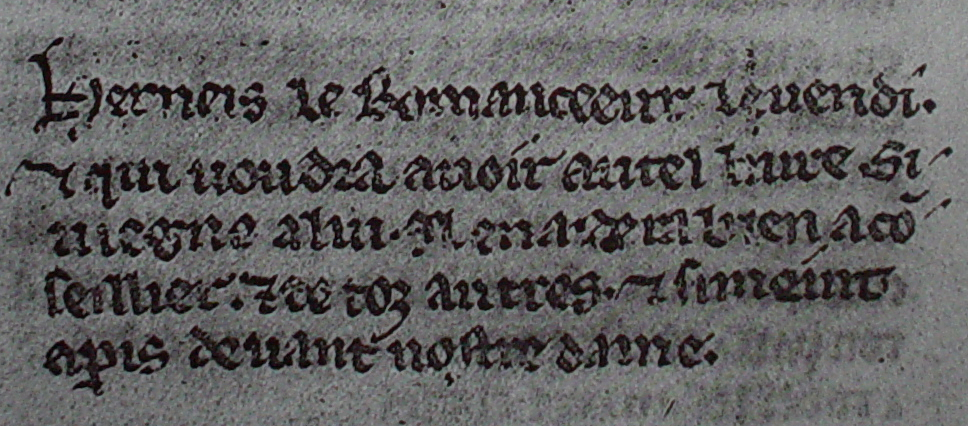 Herneis le Romanceeur le uendi.
⁊ qui uoudra auoir autel liure si
uiegne a lui. il en aidera bien a cō
seillier. ⁊ de toꝫ autres. ⁊ si meint
a ꝑis deuant nostre dame.